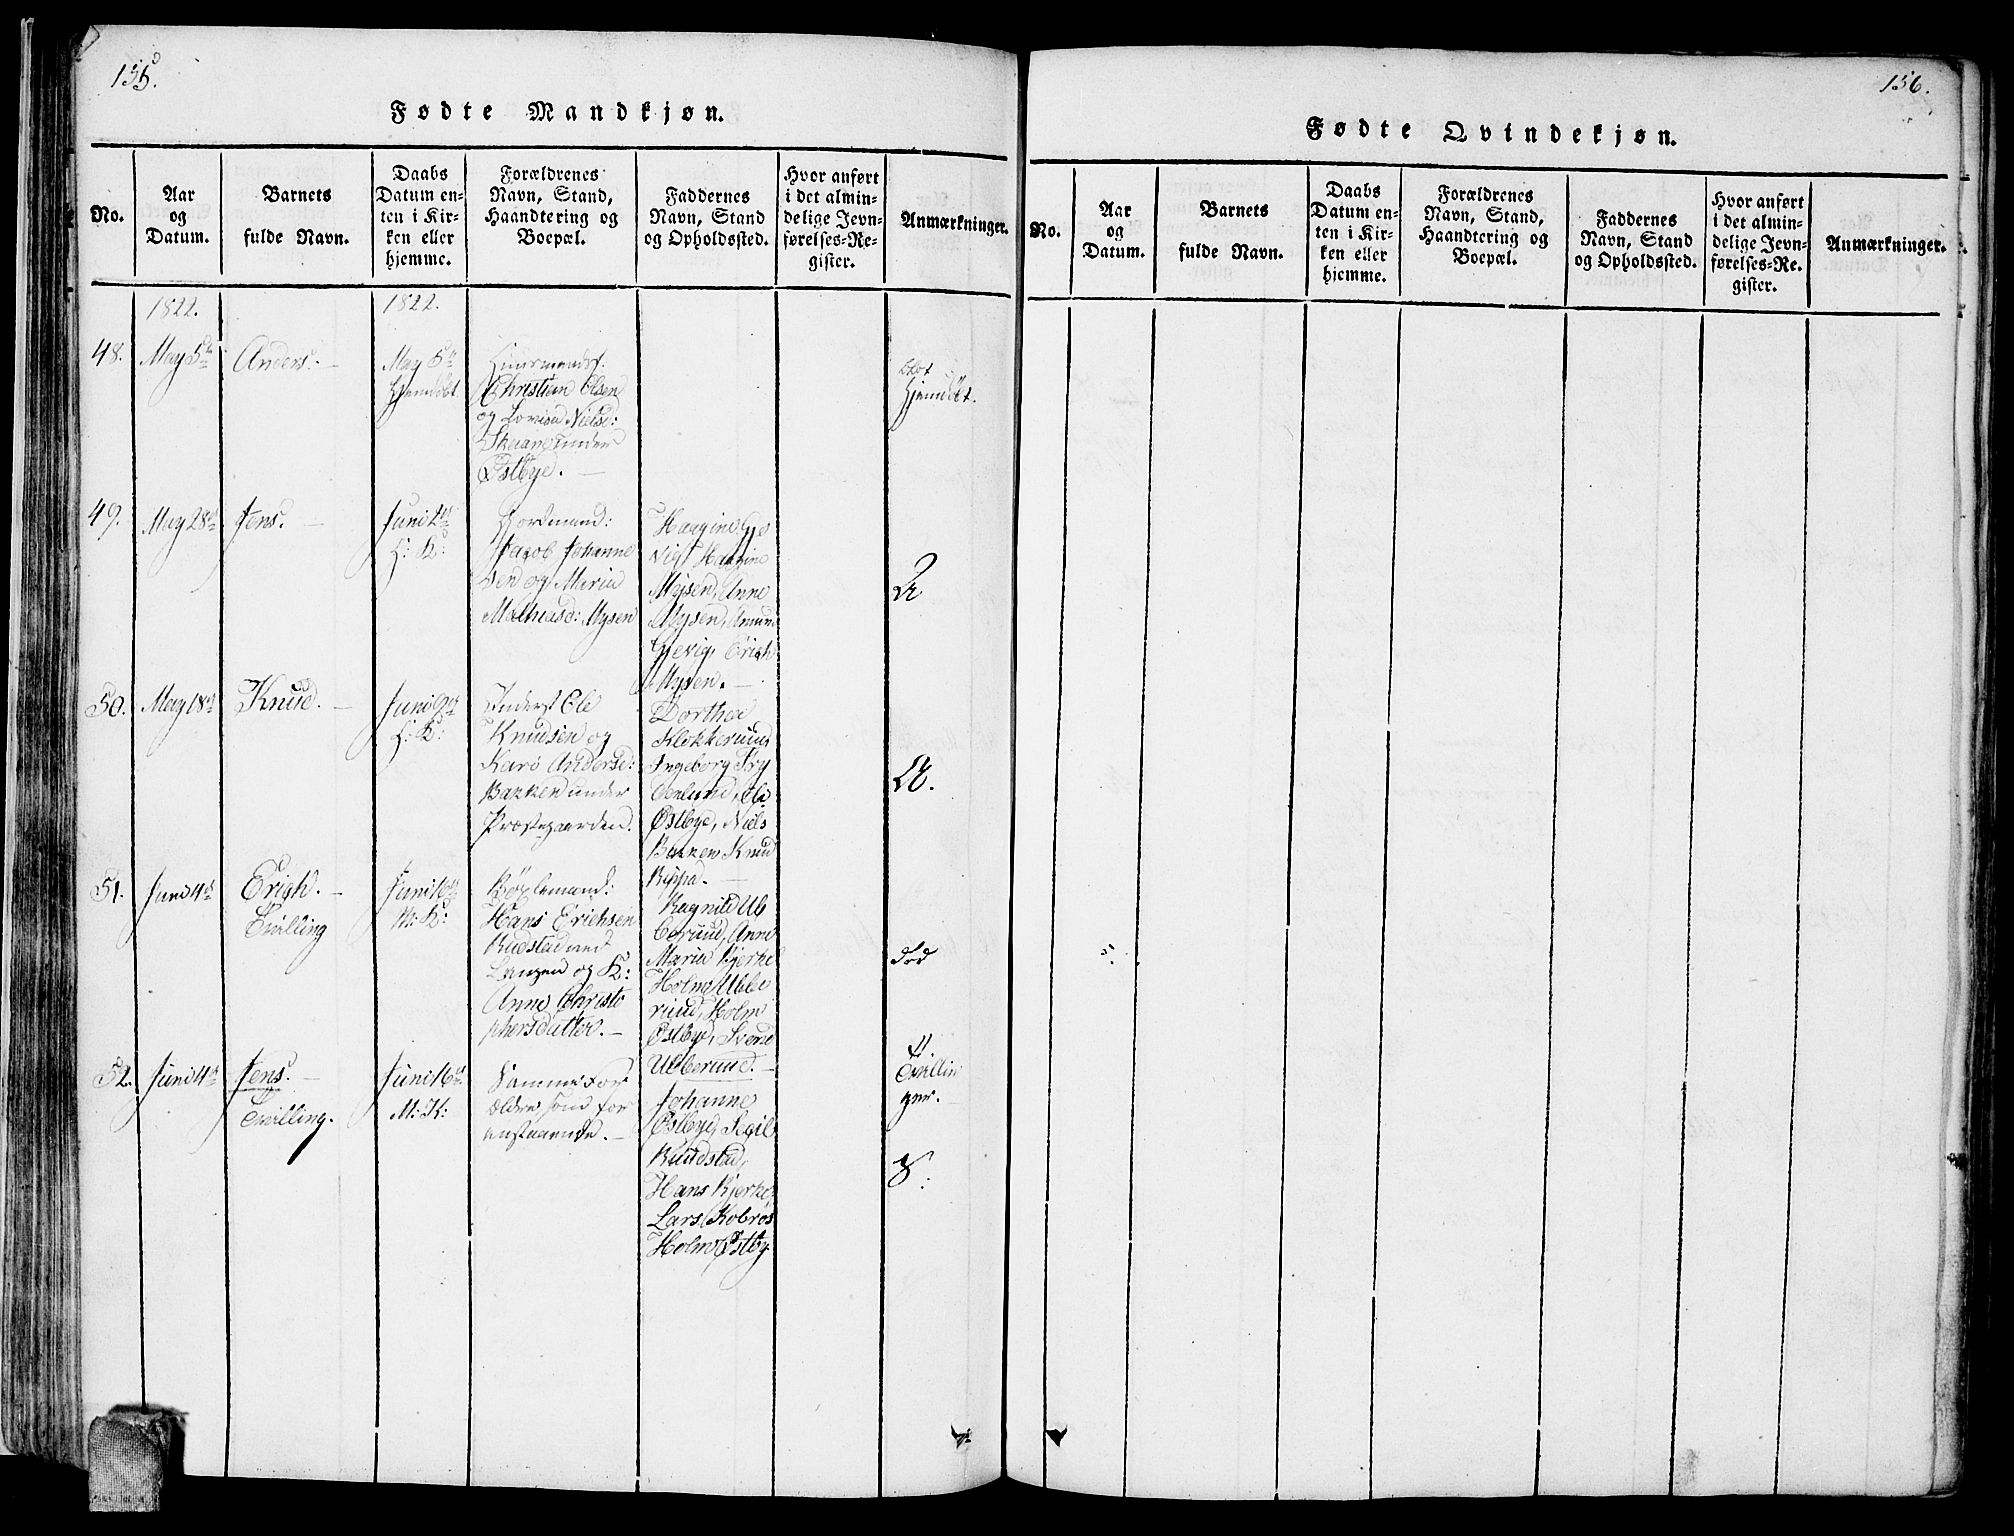 155.
Fødte Mandkjøn.
No.
Aar
og
Datum.
Barnets
fulde Navn.
Daabs
Datum en-
ten i Kir-
ken eller
hjemme.
Forældrenes
Navn, Stand,
Haandtering og
Boepæl.
Faddernes
Navn, Stand
og Opholdssted.
Hvor anført
i det almin-
delige Jevn-
førelses-Re-
gister.
Anmærkninger.
1822.
1822.
48.
May 5te
Anders.
May 5te
Hjemdøbt.
Huusmand
Christian Olsen
og Lovise Nielsd:
Skaaret under
Østbye.
Hjemdøbt.
49.
May 28de
Jens.
Juni 2den
H: K:
Gaardmand:
Jacob Johanne
sen og Maria
Mathiasd: Mysen
Haagine Gje
vig, Haagine
Mysen, Anne
Mysen, Amund
Gjevig, Erich
Mysen.
50.
May 18de
Knud.
Juni 9de
H: K:
Inderst Ole
Knudsen og
Kari Andersd:
Bakken under
Præstegaarden.
Dorthea
Klokkeruud,
Ingeborg Fry
denlund, Ole
Østbye, Niels
Bakken, Knud
Rippa.
51.
Juni 4de
Erich.
Tvilling
Juni 16de
M: K:
Bøxlemand:
Hans Erichsen
Rudstad ved
Langen og K:
Anne Christo
phersdatter.
Ragnild Ub
berud, Anne
Maria Bjerke
Holm Ubbe
ruud, Holm
Østbye, Svend
Ubberuud.
død
52.
Juni 4de
Jens.
Tvilling.
Juni 16de
M: K:
Samme For
ældre som for
anstaaende.
Johanne
Østbye, Segil
Ruudstad,
Hans Bjerke,
Lars Kobrøs
Holm Østby
Tvillin
ger.
156.
Fødte Qvindekjøn.
No.
Aar
og
Datum.
Barnets
fulde Navn.
Daabs
Datum en-
ten i Kir-
ken eller
hjemme.
Forældrenes
Navn, Stand,
Haandtering og
Boepæl.
Faddernes
Navn, Stand
og Opholdssted.
Hvor anført
i det almin-
delige Jevn-
førelses-Re-
gister.
Anmærkninger.